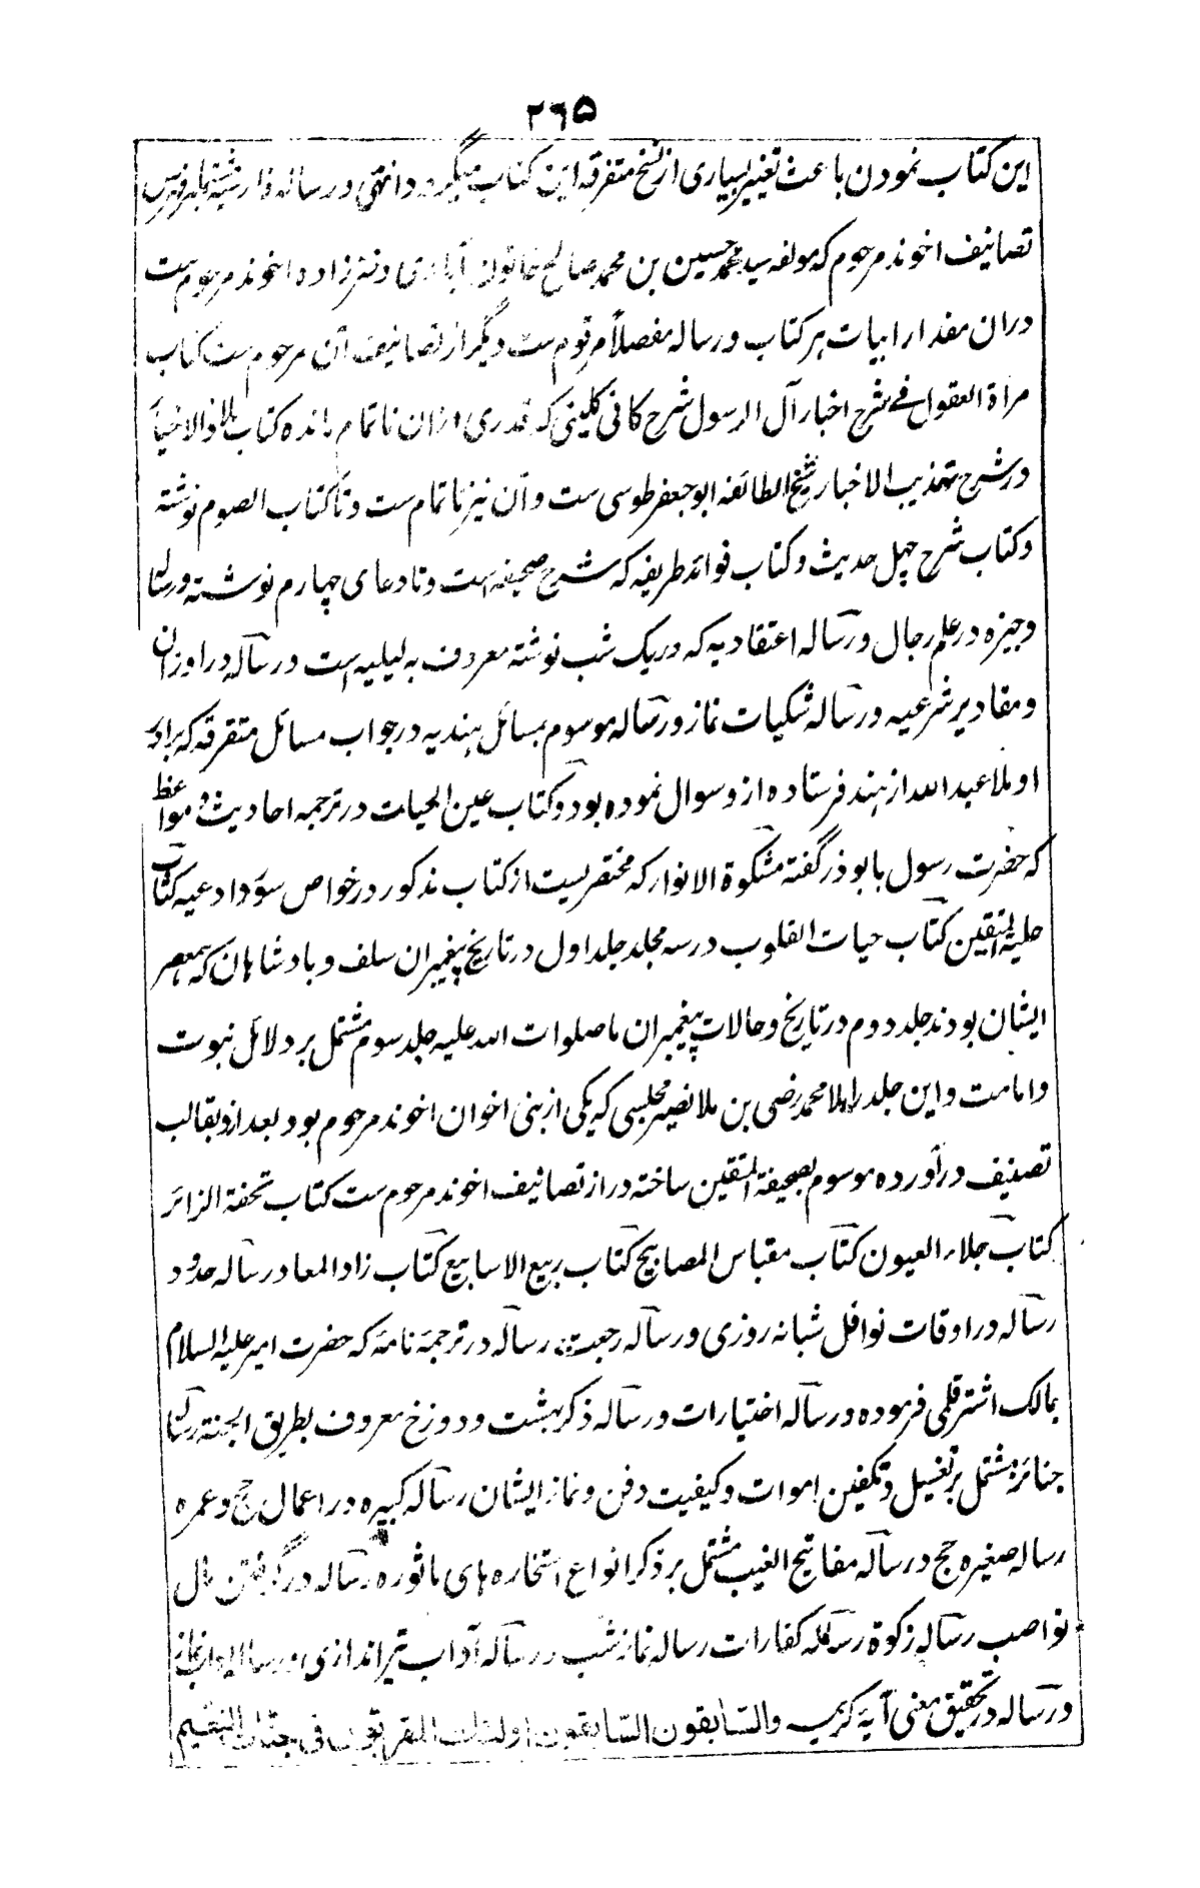 ۲۶۵
این کتاب نمودن باعث تغییر بسیاری از نسخ متفرقه این کتاب میگردد انتهی و رساله
تصانیف اخوند مرحوم که مولفه سید محمد حسین بن محمد صالح خاتون آبادی دختر زاده اخوند مرحوم ست
دران مقدار ابیات هر کتاب و رساله مفصلاً مرقوم ست دیگر از تصانیف آن مرحوم ست کتاب
مرأة العقول فے شرح اخبار آل الرسول شرح کافی کلینی که قدری ازان ناتمام مانده کتاب ملاذ الاخیار
در شرح تهذیب الاخبار شیخ الطائفه ابو جعفر طوسی ست و آن نیز ناتمام ست و تا کتاب الصوم نوشته
و کتاب شرح چهل حدیث و کتاب فوائد طریفه که شرح صحیفه است و تا دعای چهارم نوشته و رساله
وجیزه در علم رجال و رساله اعتقادیه که در یک شب نوشته معروف به لیلیه است و رساله در اوزان
و مقادیر شرعیه و رساله شکیات نماز و رساله موسوم بمسائل هندیه در جواب مسائل متفرقه که برادر
او ملا عبد الله از هند فرستاده از و سوال نموده بود و کتاب عین الحیات در ترجمه احادیث و مواعظ
که حضرت رسول بابوذر گفته مشکوة الانوار که مختصریست از کتاب مذکور در خواص سور و ادعیه کتاب
حلیة المتقین کتاب حیات القلوب در سه مجلد جلد اول در تاریخ پیغمبران سلف و بادشاهان که همعصر
ایشان بودند جلد دوم در تاریخ و حالات پیغمبران ما صلوات الله علیه جلد سوم مشتمل بر دلائل نبوت
و امامت و این جلد را ملا محمد رضی بن ملا نصیر مجلسی که یکی از بنی اخوان اخوند مرحوم بود بعد ازو بقالب
تصنیف در آورده موسوم بصحیفة المتقین ساخته در از تصانیف اخوند مرحوم ست کتاب تحفة الزائر
کتاب جلاء العیون کتاب مقباس المصابیح کتاب ربیع الاسابیع کتاب زاد المعاد رساله حدود
رساله در اوقات نوافل شبانه روزی و رساله رجعت رساله در ترجمهٔ نامهٔ که حضرت امیر علیه السلام
بمالک اشتر قلمی فرموده و رساله اختیارات و رساله ذکر بهشت و دوزخ معروف بطریق الجنة رساله
جنائز مشتمل بر تغسیل و تکفین اموات و کیفیت دفن و نماز ایشان رساله کبیره در اعمال حج و عمره
رساله صغیره حج و رساله مفاتیح الغیب مشتمل بر ذکر انواع استخاره های ماثوره رساله در گرفتن مال
نواصب رساله زکوة رساله کفارات رساله نماز شب و رساله آداب تیر اندازی
و رساله در تحقیق معنی آیهٔ کریمه والسّابقون السّابقون اولئك المقربون فی جنّات النعیم